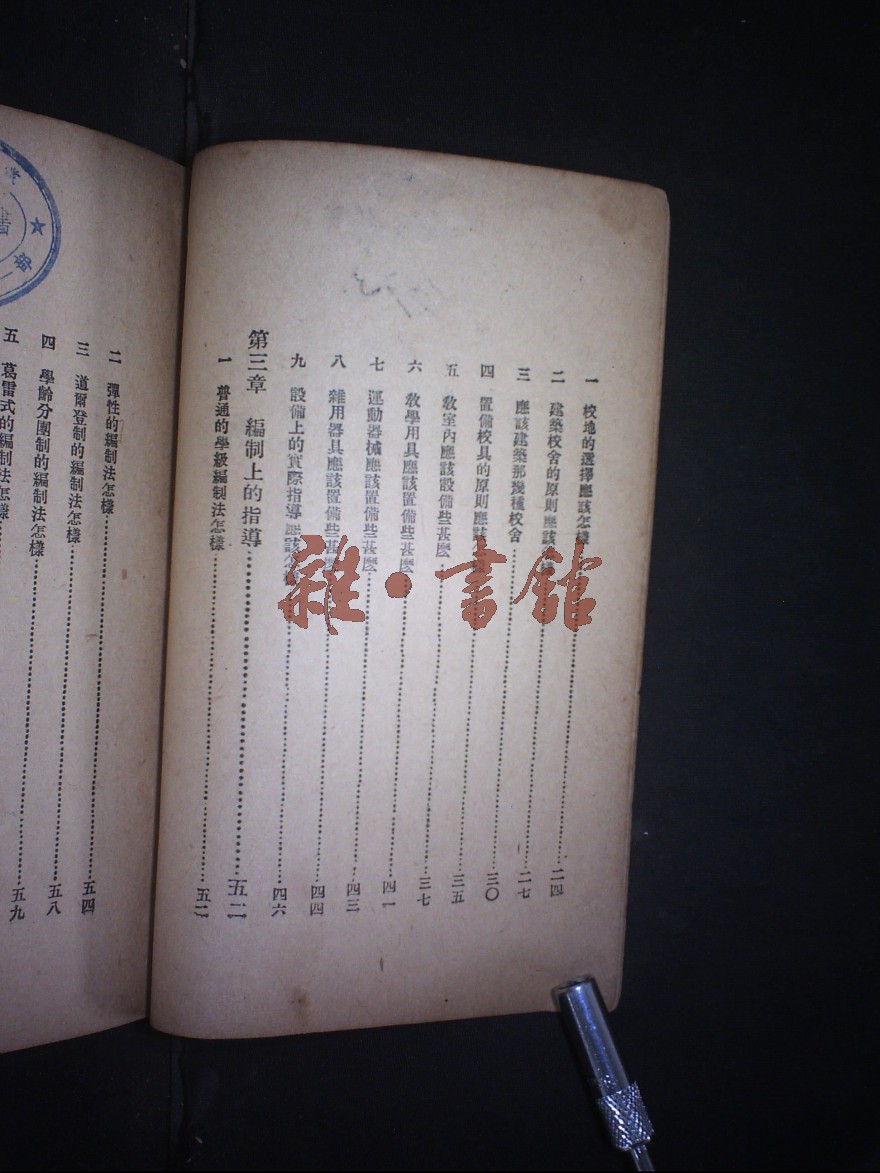 一 校地的選擇應該怎樣……二四
二 建築校舍的原則應該……二七
三 應該建築那幾種校舍……三〇
四 置備校具的原則應該……三五
五 教室內應該設備些甚麼……三七
六 教學用具應該置備些甚麼……四一
七 運動器械應該置備些甚麼……四三
八 雜用器具應該置備些甚麼……四四
九 設備上的實際指導應該怎樣……四六
第三章 編制上的指導……五二
一 普通的學級編制法怎樣……五二
二 彈性的編制法怎樣……五四
三 道爾登制的編制法怎樣……五八
四 學齡分團制的編制法怎樣……五九
五 葛雷式的編制法怎樣
雜·書館
書